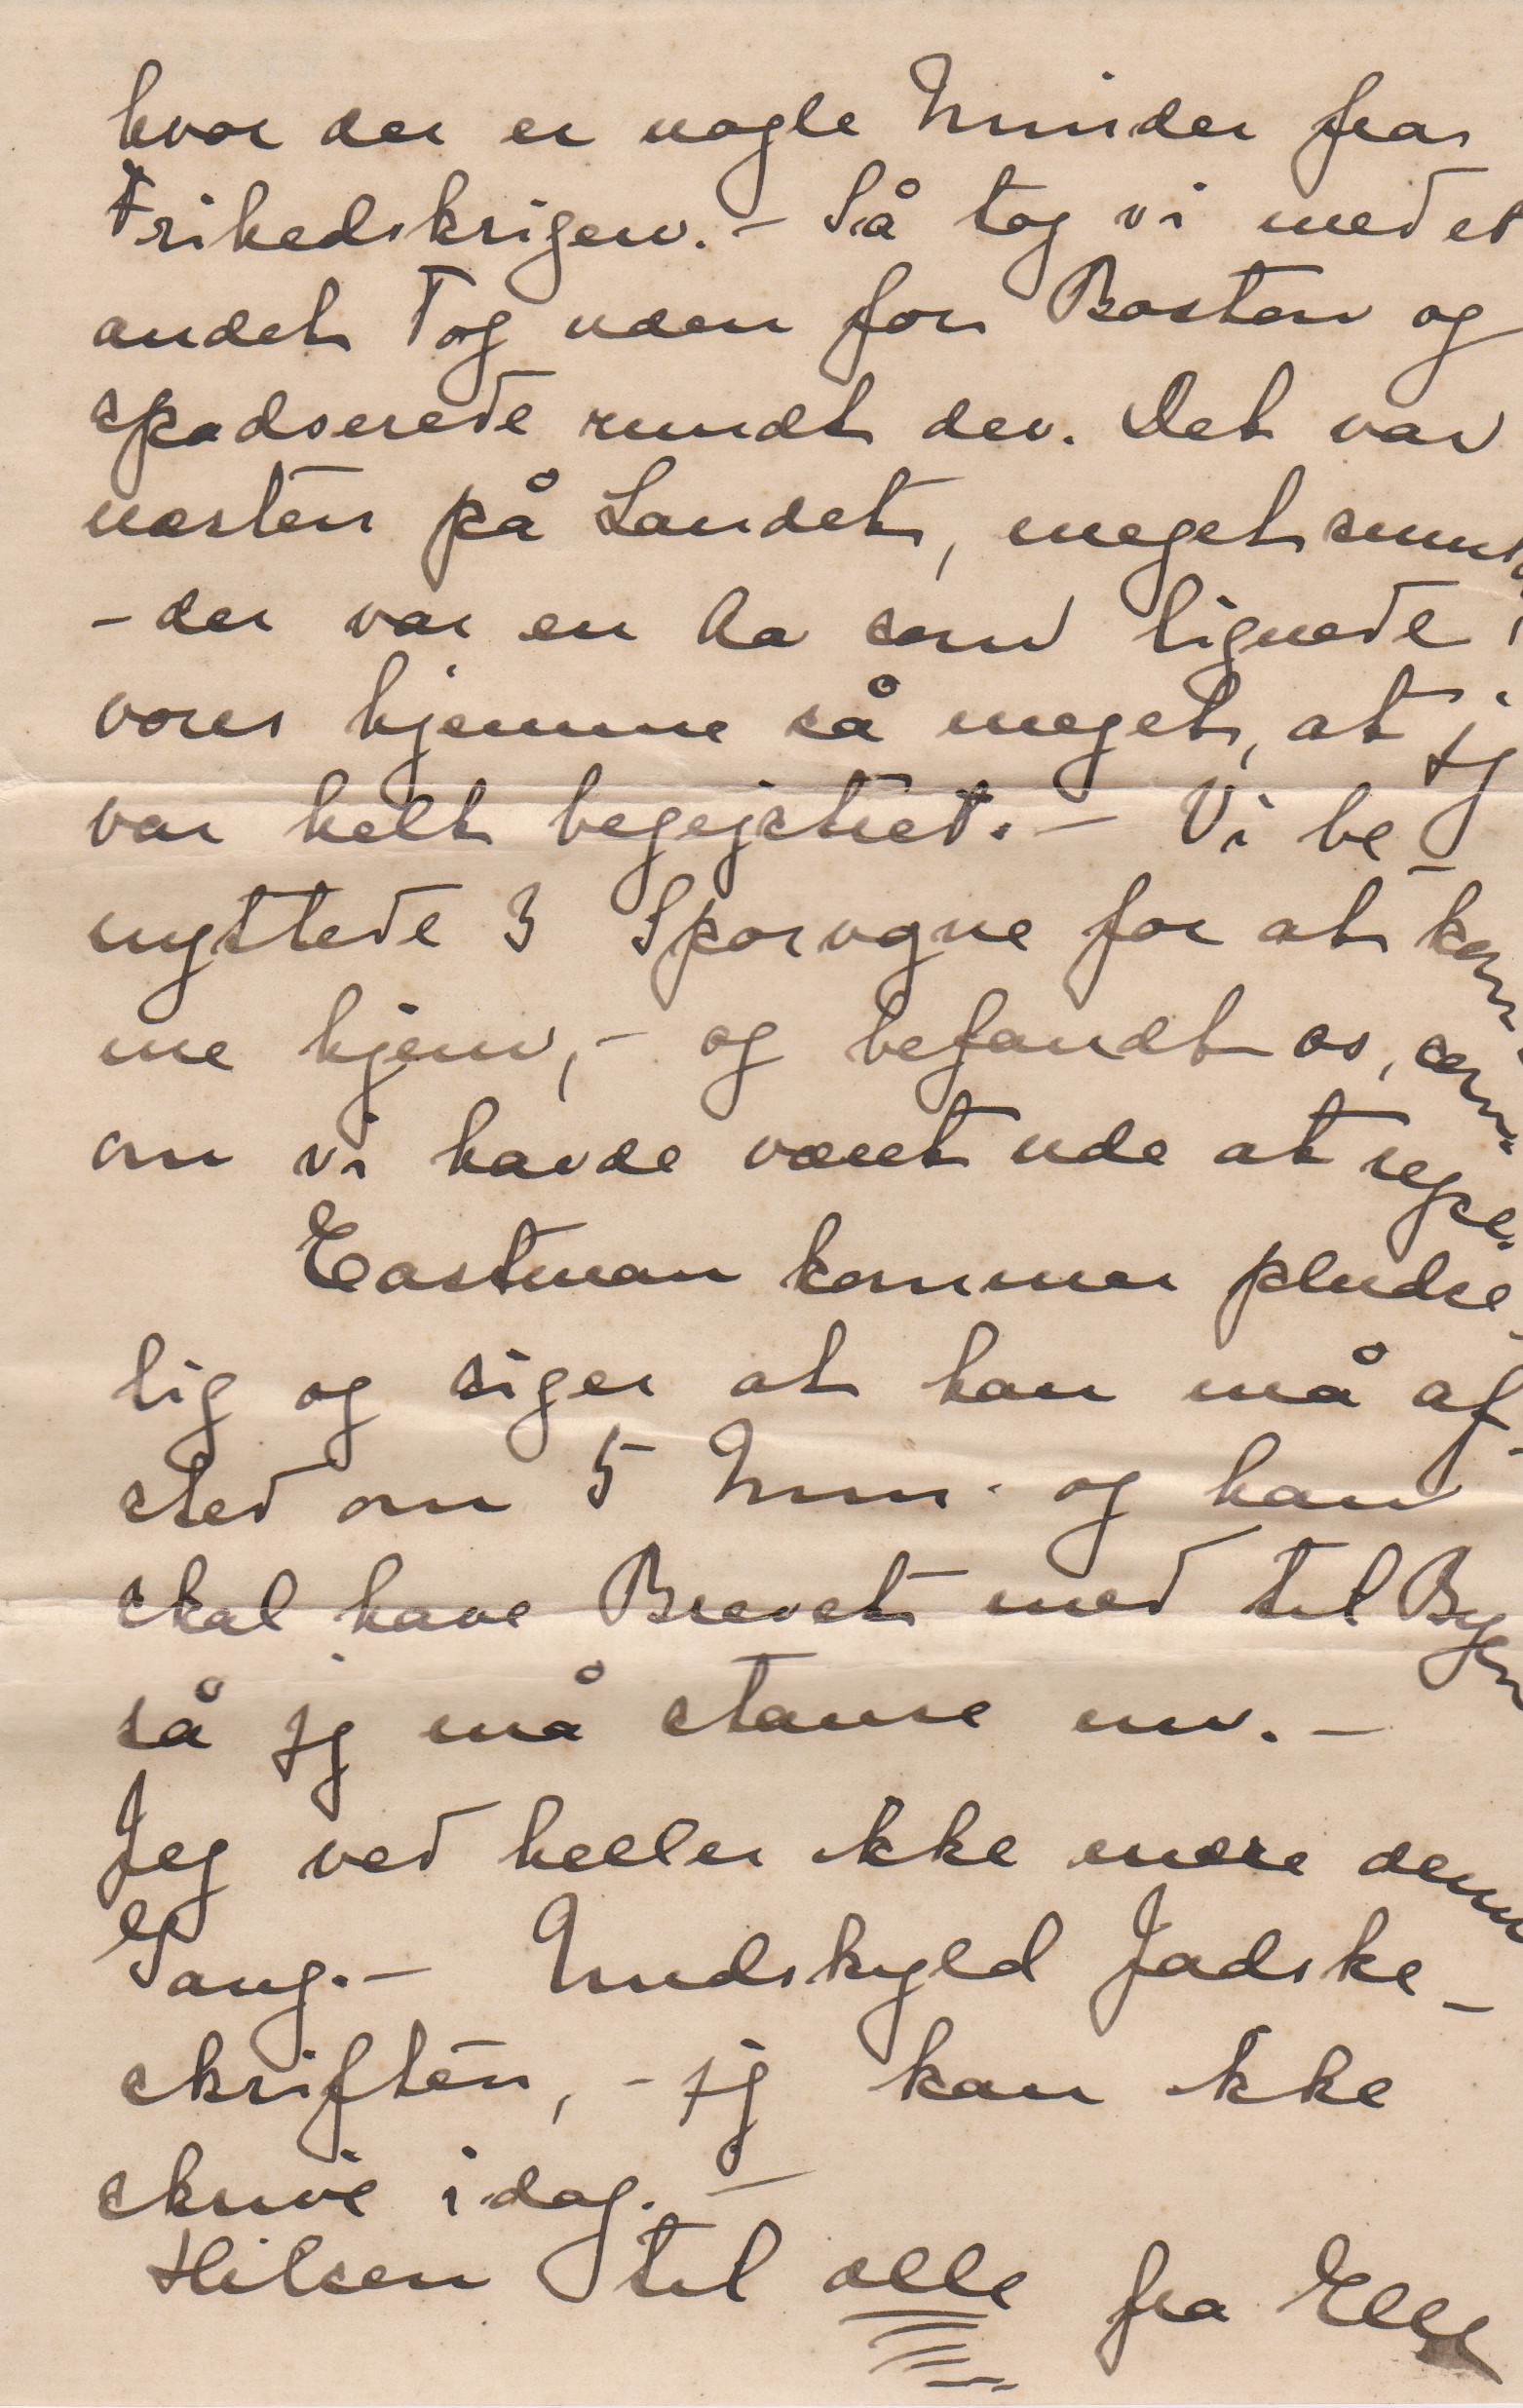 hvor der er nogle Minder fra
Frihedskrigen. – Så tog vi med et
andet Tog uden for Boston og
spadserede rundt der. Det var
næsten på Landet, meget smukt
– der var en Aa som lignede
vores hjemme så meget, at jg
var helt begejstret. – Vi be-
nyttede 3 Sporvogne for at kom-
me hjem, – og befandt os, som
om vi havde været ude at rejse.
Eastman kommer pludse-
lig og siger at han må af-
sted om 5 Min. og han
skal have Brevet med til Byen
så jg må stanse nu. –
Jeg ved heller ikke mere denne
Gang. – Undskyld Jadske-
skriften, – jg kan ikke
skrive idag. –
Hilsen til alle fra Elle